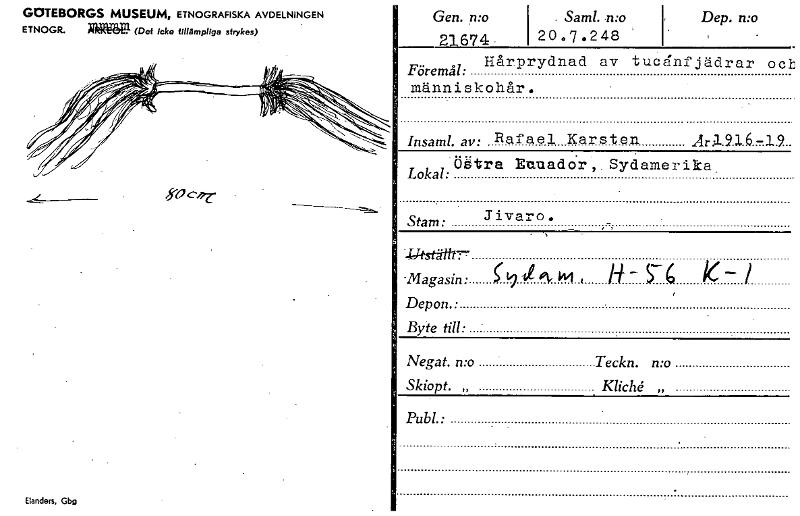 GÖTEBORGS MUSEUM, ETNOGRAFISKA AVDELNINGEN
ETNOGR. ARKEOL. (Det icke tillämpliga strykes)
80 cm
Elanders, Gbg
Gen. n:o Saml. n:o Dep. n:o
21674 20.7.248
Föremål: Hårprydnad av tucánfjädrar och
människohår.
Insaml. av: Rafael Karsten År 1916-19
Lokal: Östra Ecuador, Sydamerika
Stam: Jivaro.
Utställt:
Magasin: Sydam. H-56 K-1
Depon.:
Byte till:
Negat. n:o Teckn. n:o
Skiopt. „ Kliché „
Publ.: